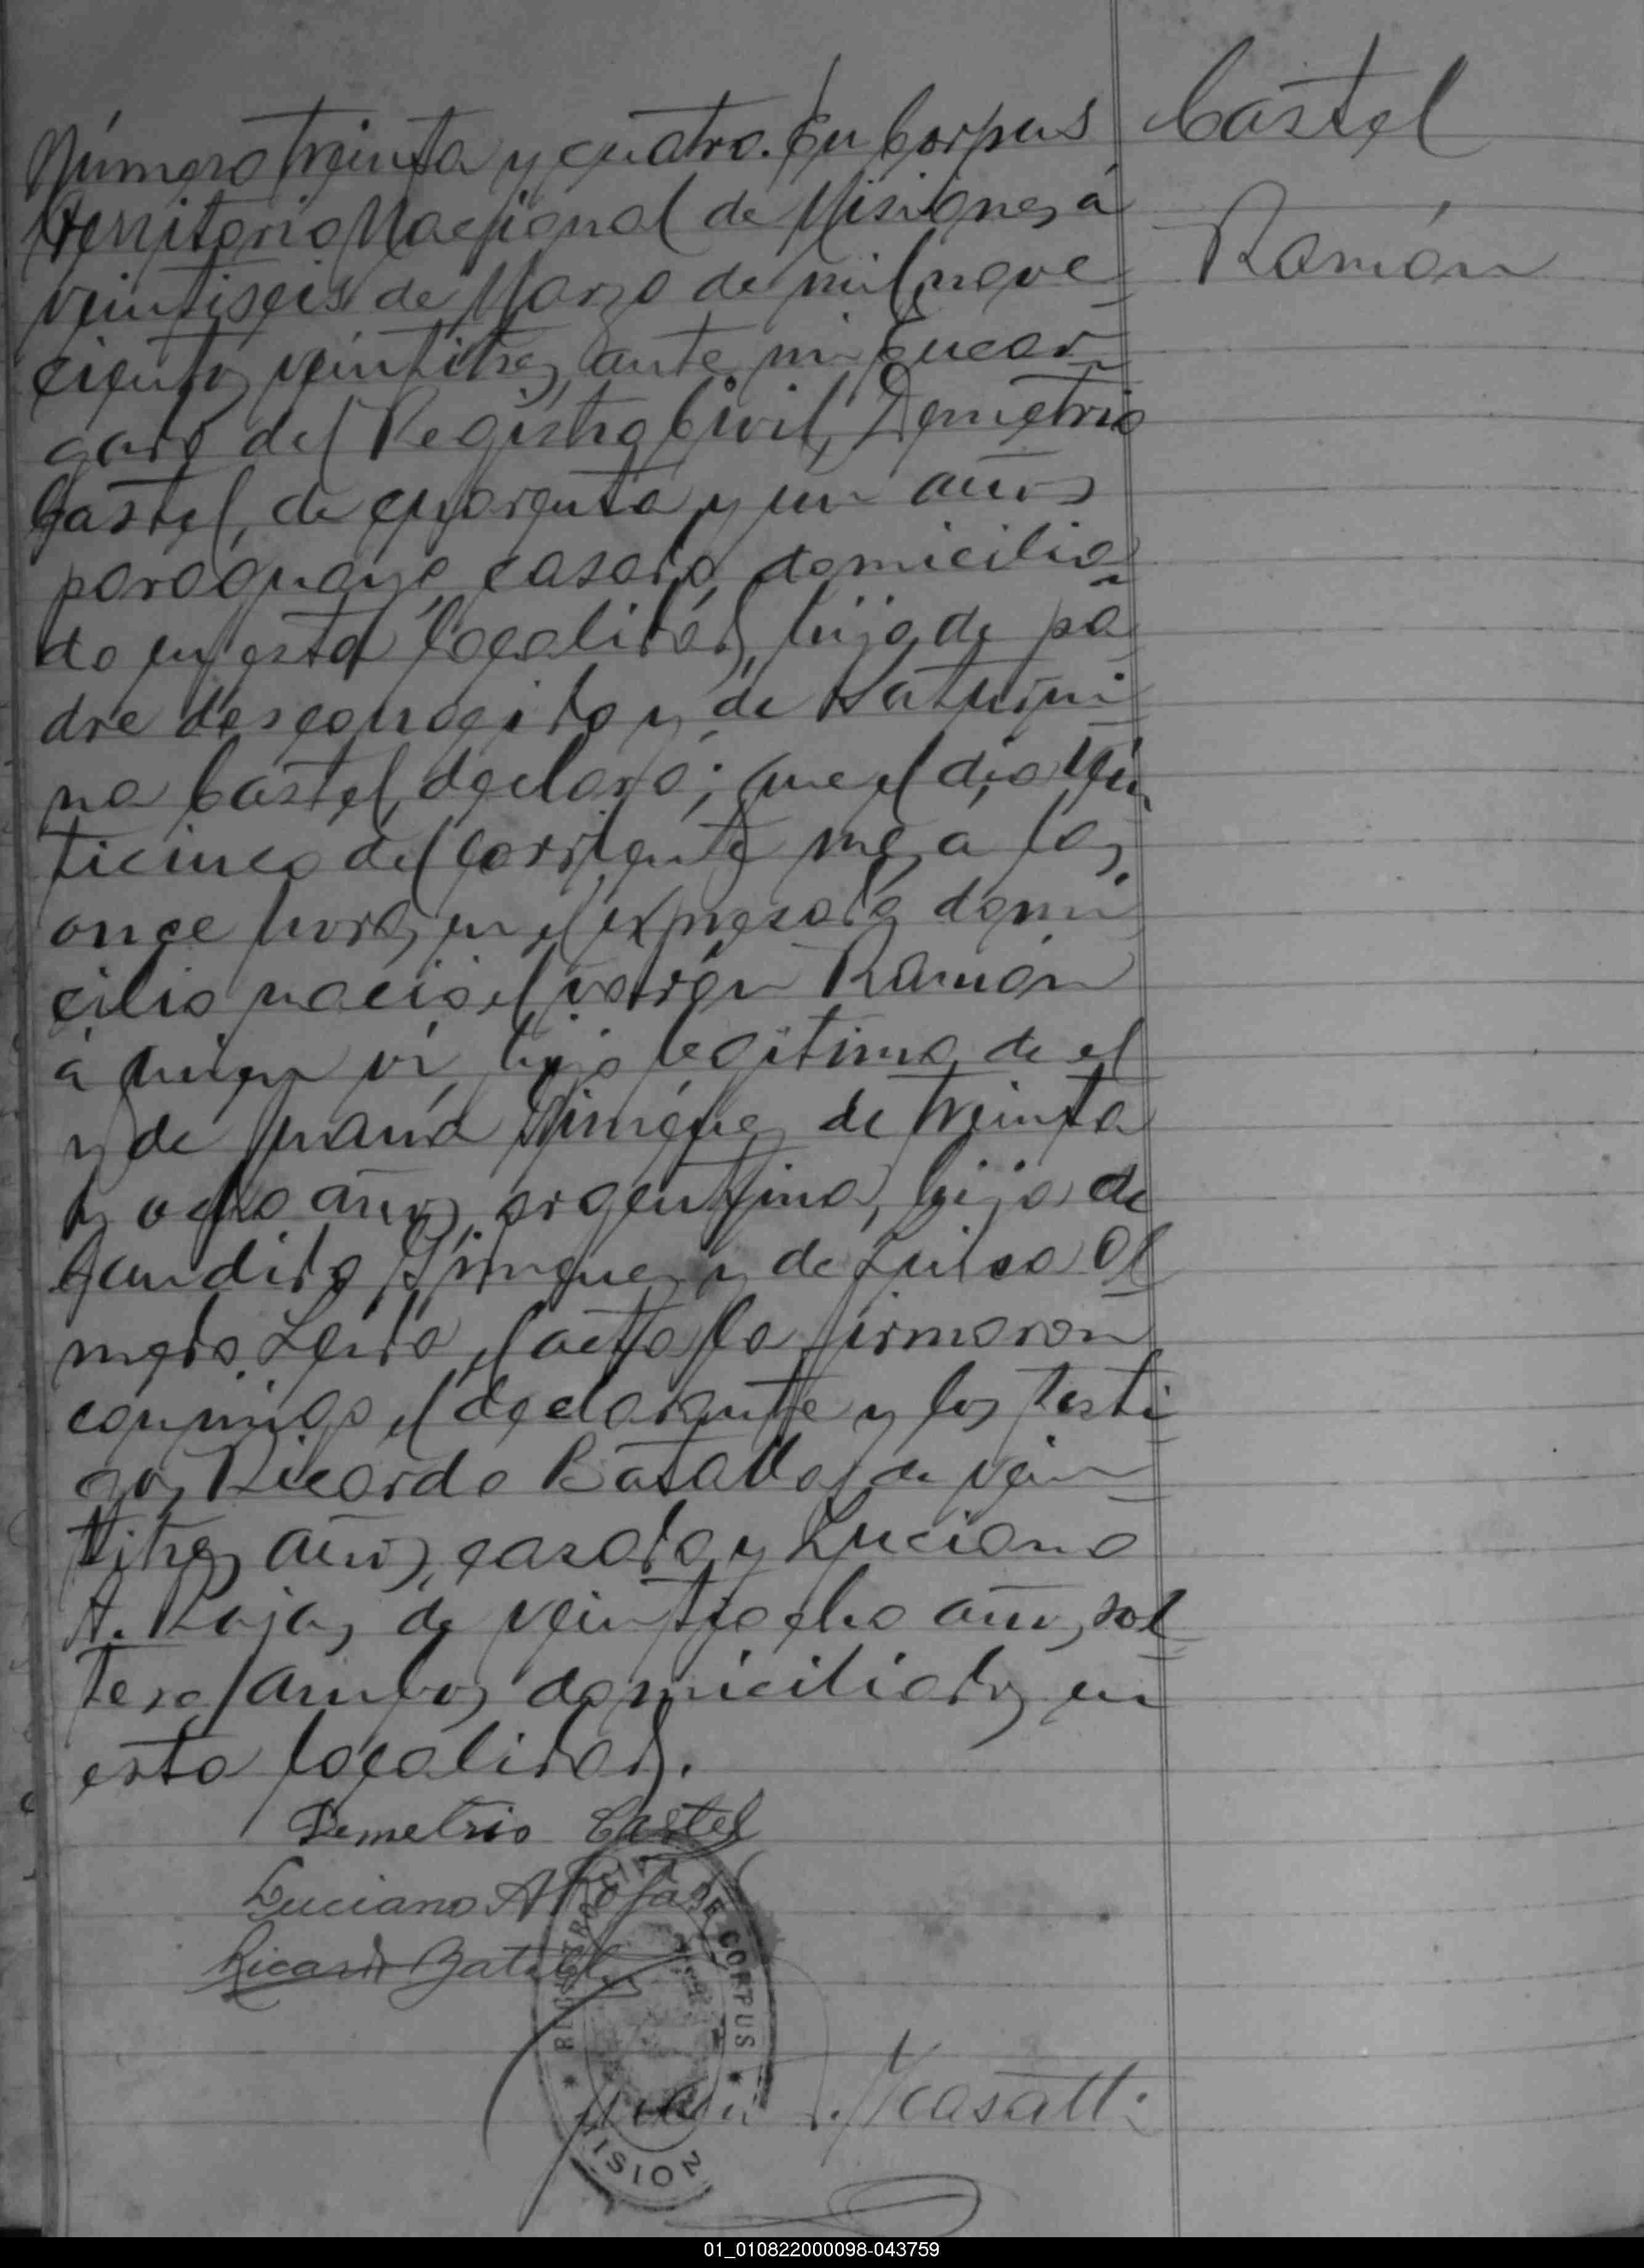 Castel
Ramón
Número treinta y cuatro. En Corpus
Territorio Nacional de Misiones, á
veintiseis de Marzo de mil nove
cientos veintitres, ante mi Encar
gado del Registro Civil, Demetrio
Castel, de cuarenta y un años
paraguayo, casado, domicilia
do en esta localidad, hijo de pa
dre desconocido y de Saturni
na Castel, declaró; que el dia vein
ticinco del corriente mes a las
once horas, en el expresado domi
cilio nació el varón Ramón
á quien vi, hijo legitimo de el
y de Juana Gimenez de treinta
y ocho años, argentina, hija de
Candido Gimenez y de Luisa Ol
medo. Leida el acta la firmaron
conmigo el declarante y los testi
gos Ricardo Batalla, de vein
titres años, casado y Luciano
A. Rojas, de veintiocho años, sol
tero, ambos domiciliados en
esta localidad.
Demetrio Castel
Luciano A Rojas
Ricardo Batalla
DE CORPUS
MISION
Casatti
01_010822000098-043759